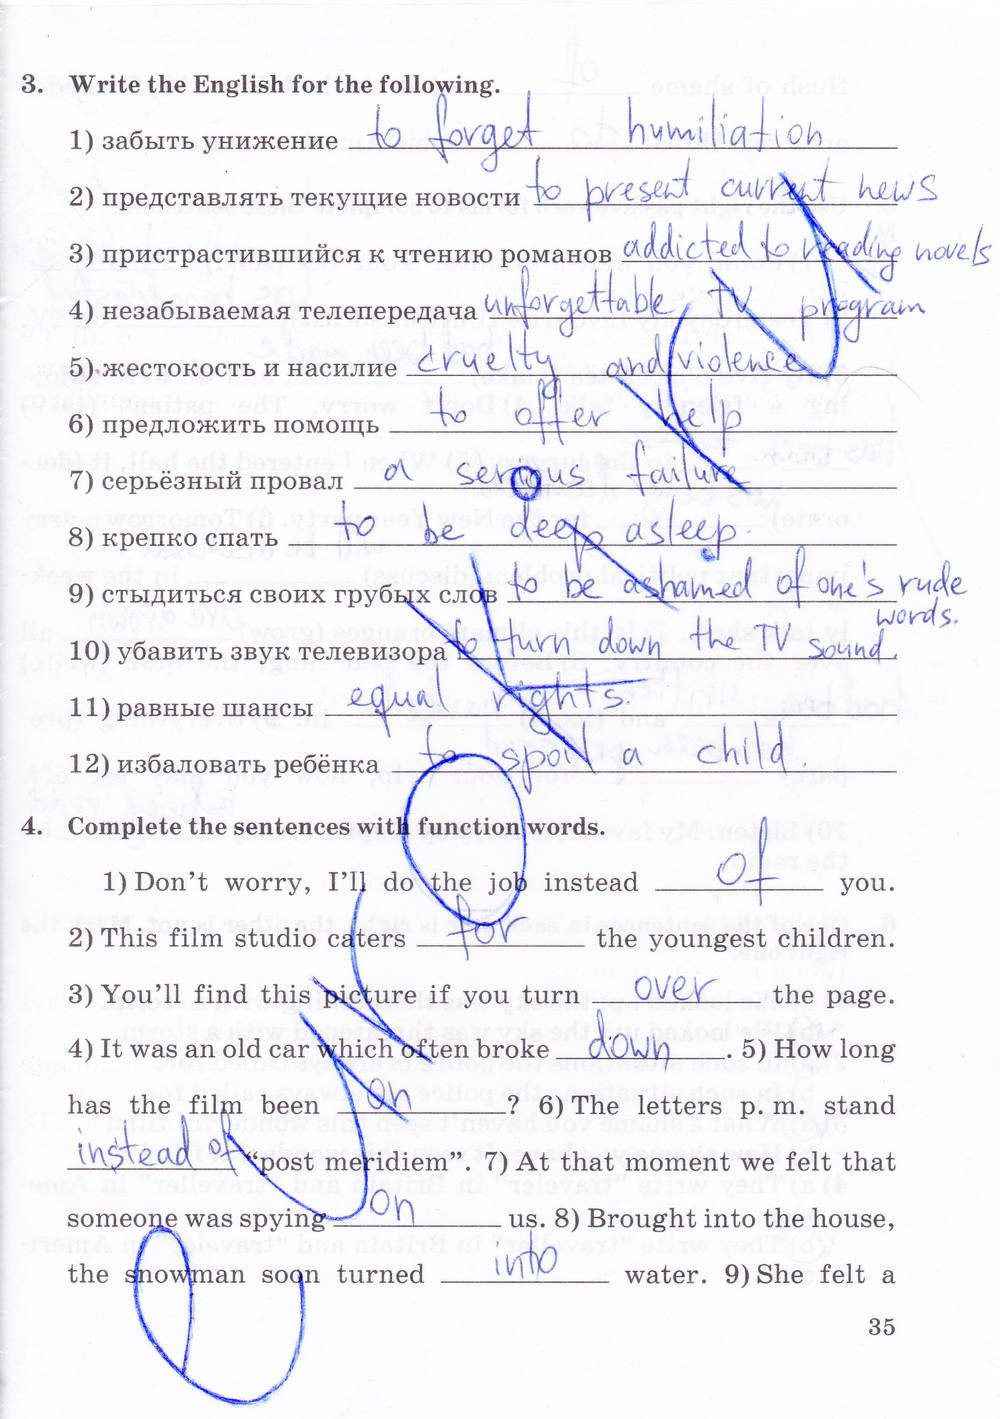 3. Write the English for the following.
1) забыть унижение to forget humiliation
2) представлять текущие новости to present current news
3) пристрастившийся к чтению романов addicted to reading novels
4) незабываемая телепередача unforgettable TV program
5) жестокость и насилие cruelty and violence
6) предложить помощь to offer help
7) серьёзный провал a serious failure
8) крепко спать to be deep asleep.
9) стыдиться своих грубых слов to be ashamed of one's rude
words.
10) убавить звук телевизора to turn down the TV sound.
11) равные шансы equal rights.
12) избаловать ребёнка to spoil a child.
4. Complete the sentences with function words.
1) Don't worry, I'll do the job instead of you.
2) This film studio caters for the youngest children.
3) You'll find this picture if you turn over the page.
4) It was an old car which often broke down. 5) How long
has the film been on ? 6) The letters p. m. stand
instead of "post meridiem". 7) At that moment we felt that
someone was spying on us. 8) Brought into the house,
the snowman soon turned into water. 9) She felt a
35